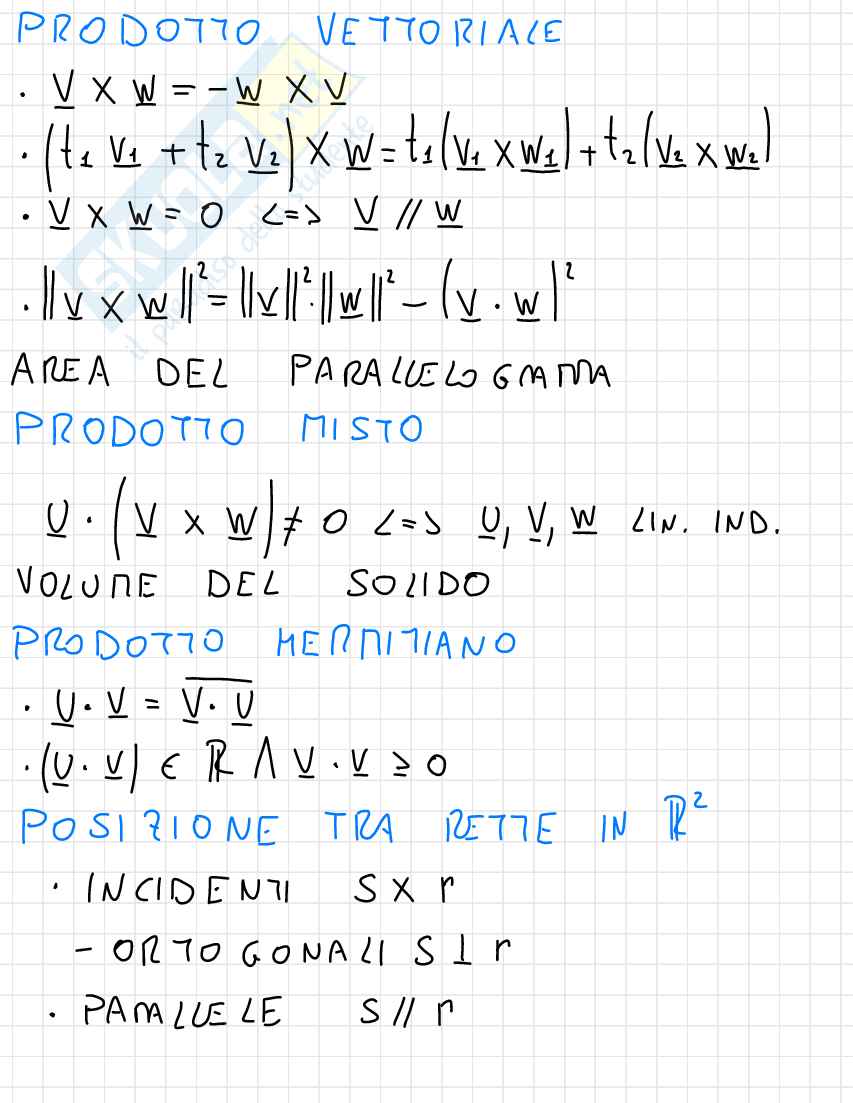 PRODOTTO VETTORIALE
· V × W = - W × V
· (t₁ V₁ + t₂ V₂) × W = t₁(V₁ × W₁) + t₂(V₂ × W₂)
· V × W = 0 <=> V // W
· ||V × W||² = ||V||² · ||W||² - (V · W)²
AREA DEL PARALLELOGRAMMA
PRODOTTO MISTO
U · (V × W) ≠ 0 <=> U, V, W LIN. IND.
VOLUME DEL SOLIDO
PRODOTTO HERMITIANO
· U · V = \overline{V · U}
· (U · V) ∈ ℝ ∧ V · V ≥ 0
POSIZIONE TRA RETTE IN ℝ²
· INCIDENTI S × r
- ORTOGONALI S ⊥ r
· PARALLELE S // r
SKUOLA.net
il paradiso dello studente